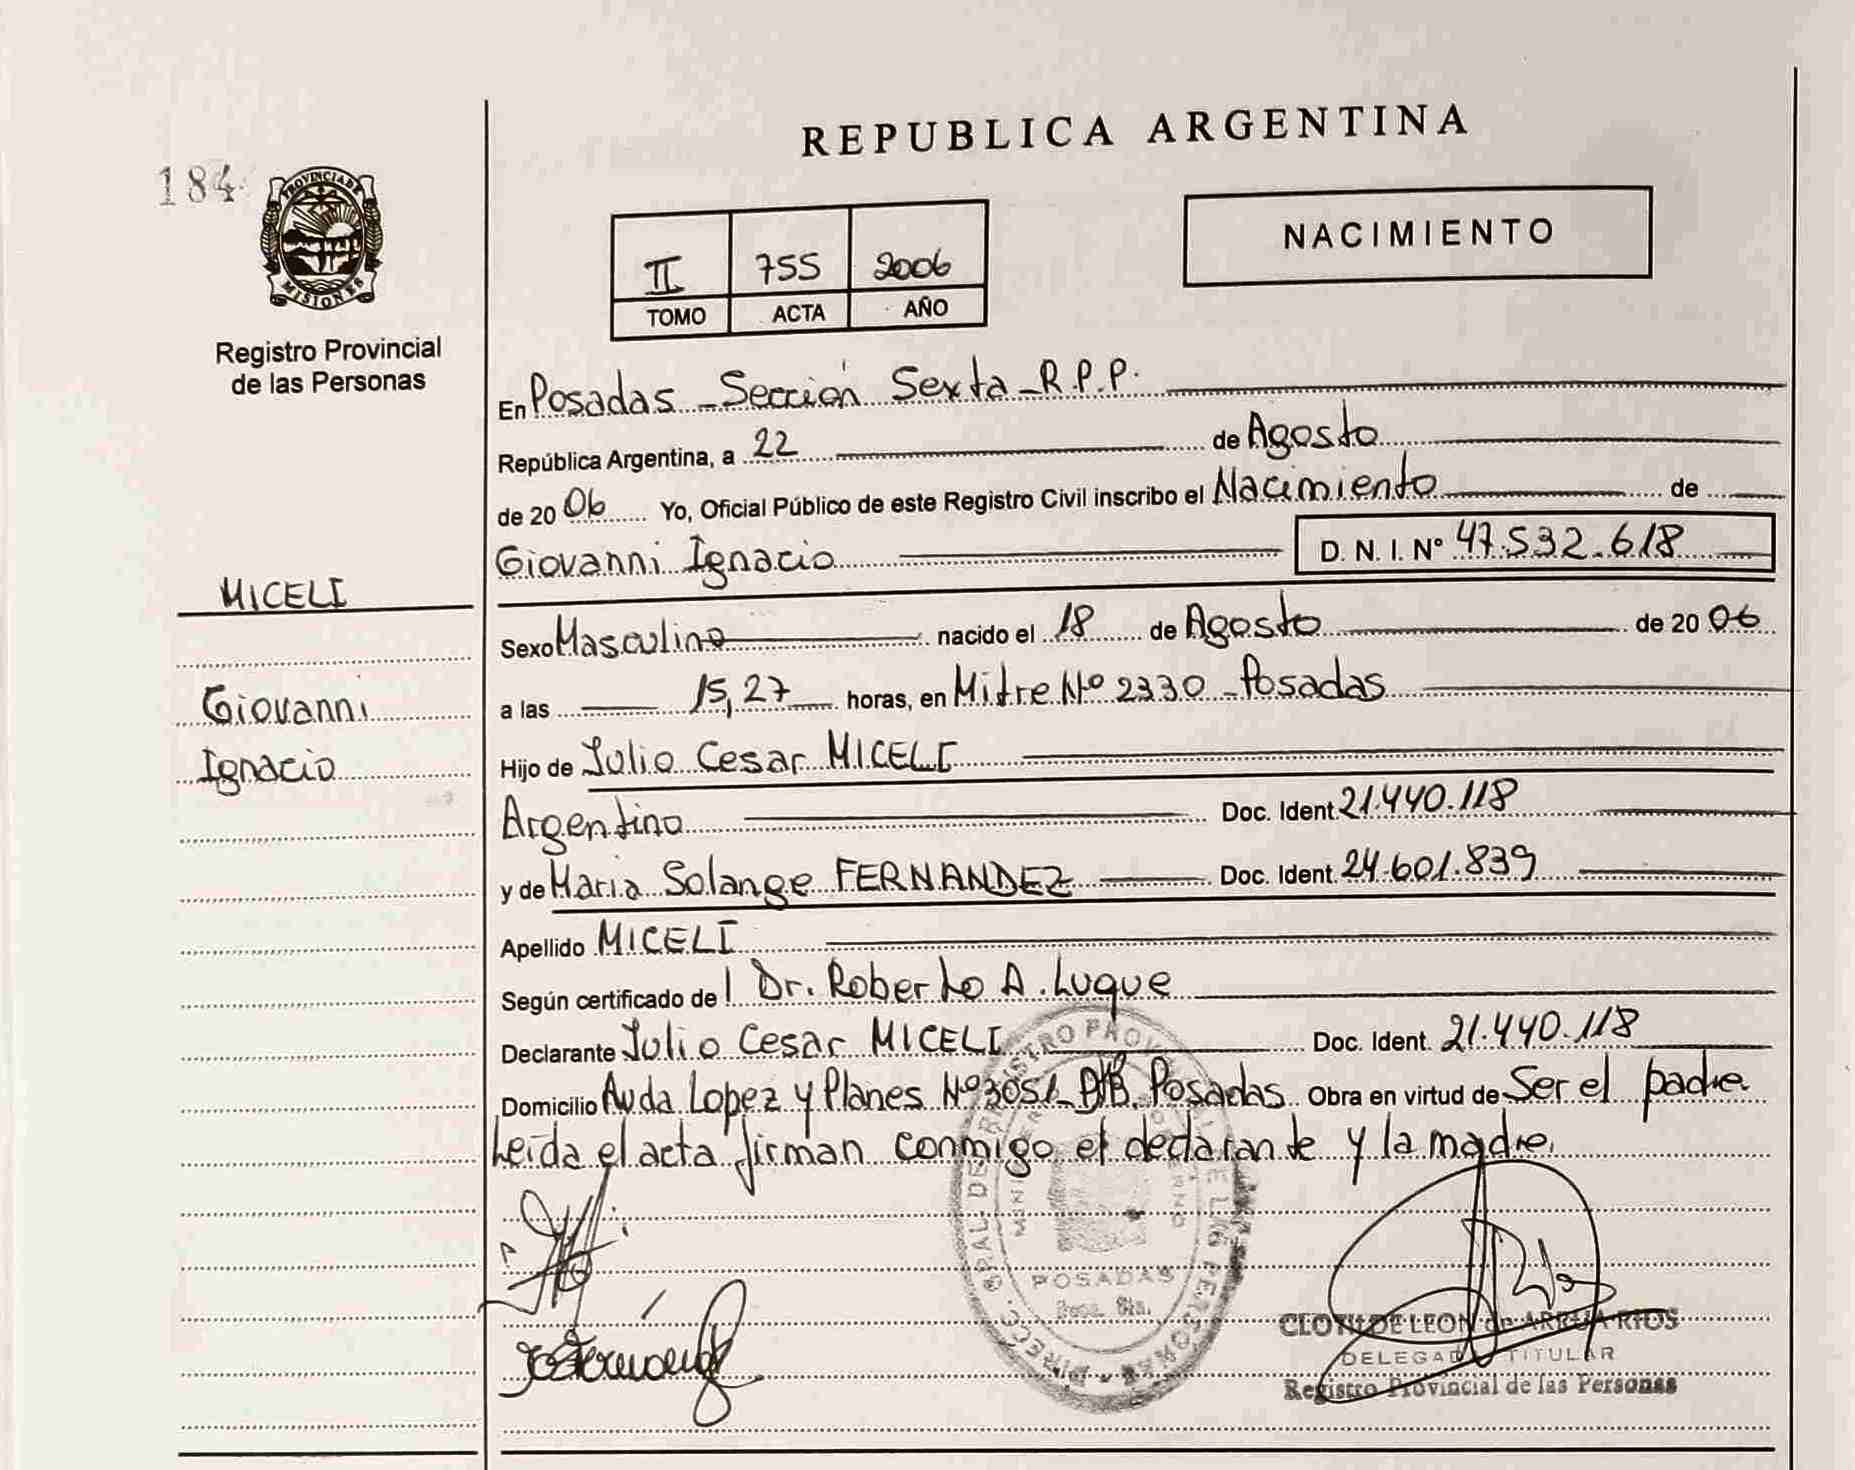 REPUBLICA ARGENTINA
184
PROVINCIA DE
MISIONES
Registro Provincial
de las Personas
II 755 2006
TOMO ACTA AÑO
NACIMIENTO
En Posadas - Sección Sexta - R.P.P.
República Argentina, a 22 de Agosto
de 2006 Yo, Oficial Público de este Registro Civil inscribo el Nacimiento de
Giovanni Ignacio D. N. I. Nº 47.532.618
MICELI
Sexo Masculino nacido el 18 de Agosto de 2006
Giovanni
a las 15,27 horas, en Mitre Nº 2330 - Posadas
Ignacio
Hijo de Julio Cesar MICELI
Argentino Doc. Ident. 21.440.118
y de Maria Solange FERNANDEZ Doc. Ident. 24.601.839
Apellido MICELI
Según certificado del Dr. Roberto A. Luque
Declarante Julio Cesar MICELI Doc. Ident. 21.440.118
Domicilio Avda Lopez y Planes Nº 3051 Posadas Obra en virtud de Ser el padre
Leída el acta firman conmigo el declarante y la madre.
POSADAS
Secc. 6ta.
CLOTILDE LEON de ARRUA RIOS
DELEGADA TITULAR
Registro Provincial de las Personas